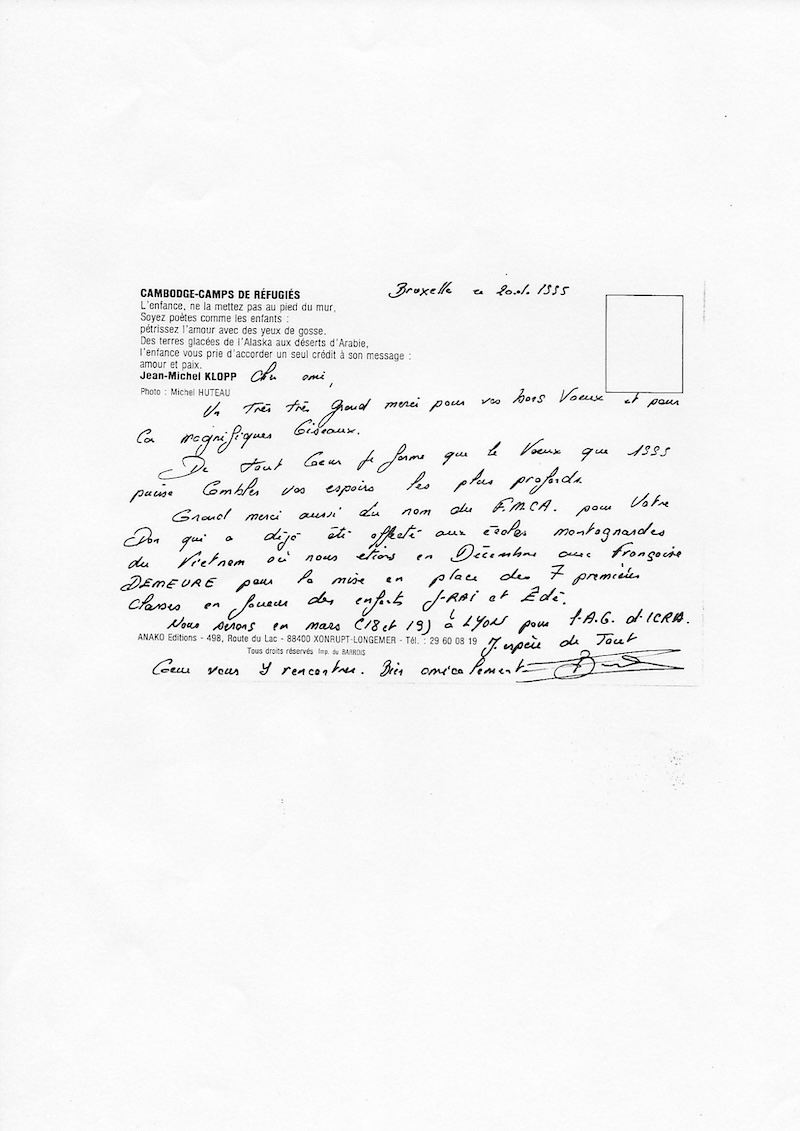 CAMBODGE-CAMPS DE RÉFUGIÉS
L'enfance, ne la mettez pas au pied du mur,
Soyez poêtes comme les enfants :
pétrissez l'amour avec des yeux de gosse.
Des terres glacées de l'Alaska aux déserts d'Arabie,
l'enfance vous prie d'accorder un seul crédit à son message :
amour et paix.
Jean-Michel KLOPP
Photo : Michel HUTEAU
Bruxelle ce 20.1. 1995
Cher ami,
Un très très grand merci pour vos bons Voeux et pour
ces magnifiques Ciseaux.
De tout Coeur je forme que le Voeux que 1995
puisse Combler vos espoirs les plus profonds.
Grand merci aussi du nom du F.M.C.A. pour Votre
Don qui a déjà été affecté aux écoles montagnardes
du Vietnam où nous étions en Décembre avec Françoise
DEMEURE pour la mise en place des 7 premières
Classes en faveur des enfants J-RAI et Êdê.
Nous serons en mars (18 et 19) à LYON pour l'A.G. d'ICRA.
ANAKO Editions - 498, Route du Lac - 88400 XONRUPT-LONGEMER - Tél. : 29 60 08 19
Tous droits réservés Imp. du BARROIS
J'espère de Tout
Coeur vous y rencontrer. Bien amicalement